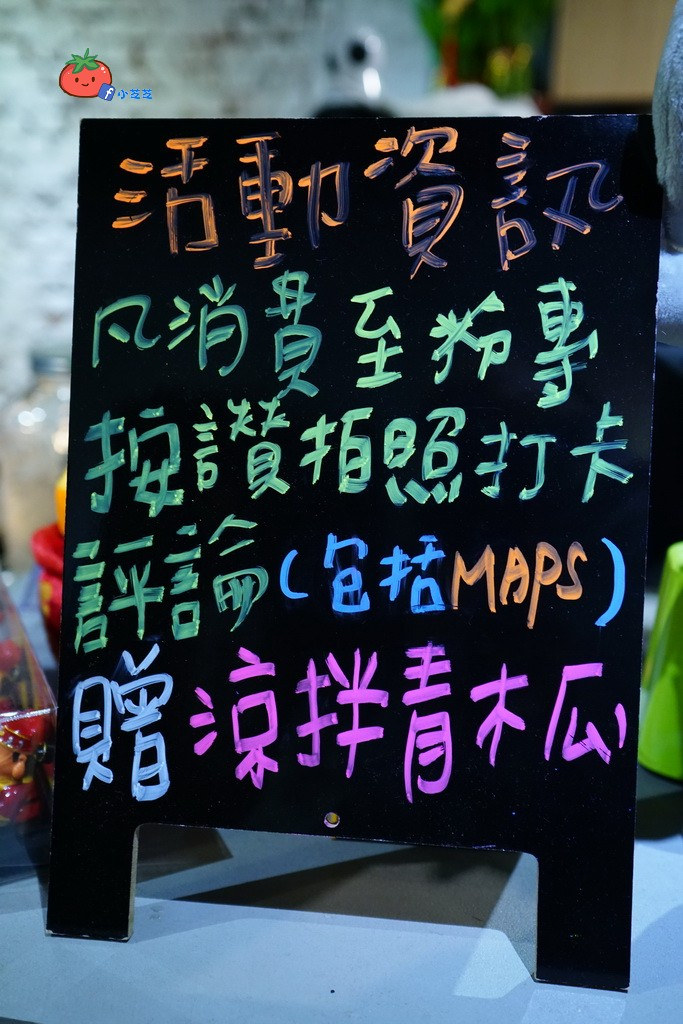 小芝芝
活動資訊
凡消費至粉專
按讚拍照打卡
評論(包括MAPS)
贈涼拌青木瓜